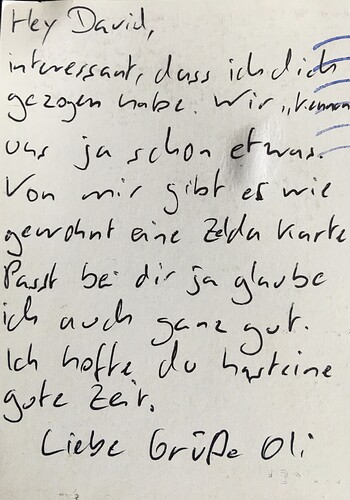 Hey David,
interessant, dass ich dich
gezogen habe. Wir „kennen
uns ja schon etwas.
Von mir gibt es wie
gewohnt eine Zelda Karte
Passt bei dir ja glaube
ich auch ganz gut.
Ich hoffe du hast eine
gute Zeit.
Liebe Grüße Oli